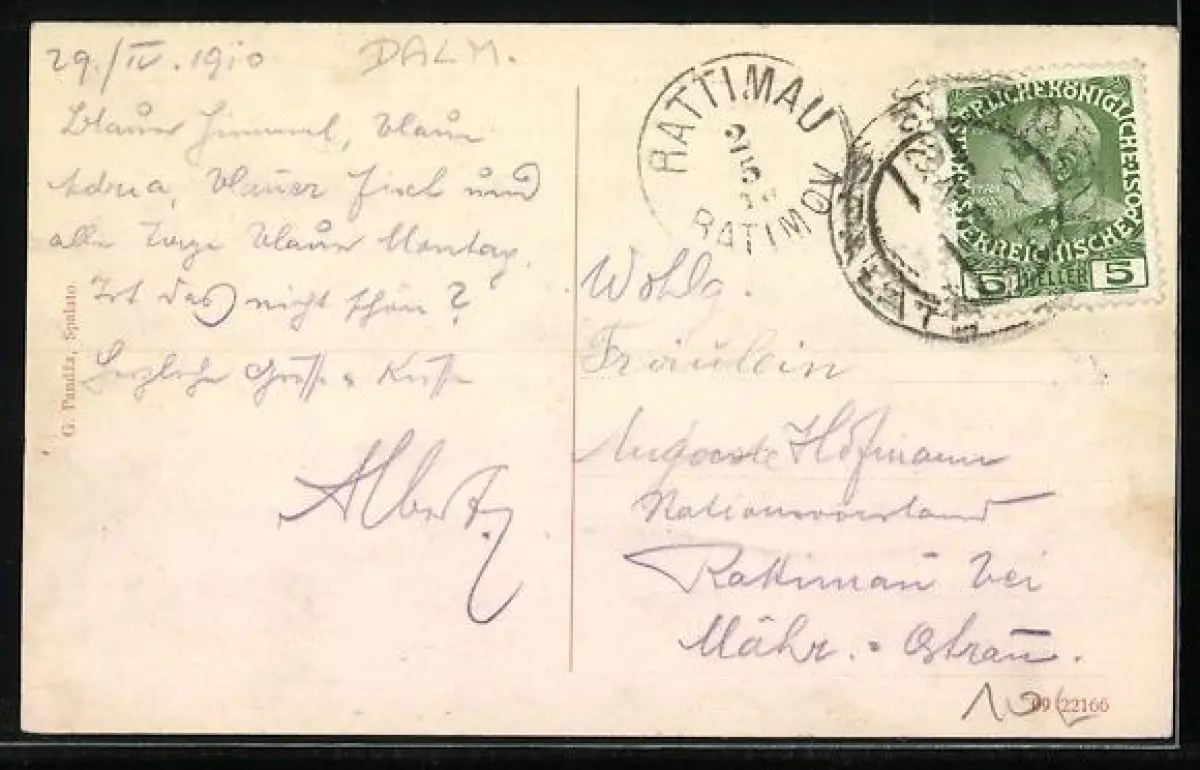 29./IV. 1910
DALM.
Blauer Himmel, blaue
Adria, blauer Fisch und
alle Tage blauer Montag.
Ist das nicht schön?
Herzliche Grüsse & Küsse
Albert
G. Pandža, Spalato.
RATTIMAU
RATIMOV
KAISERLICHEKÖNIGLICHE
ÖSTERREICHISCHEPOST
5 HELLER 5
Wohlg.
Fräulein
Auguste Hofmann
Stationsvorstand
Rattimau bei
Mähr.-Ostrau.
09 22166